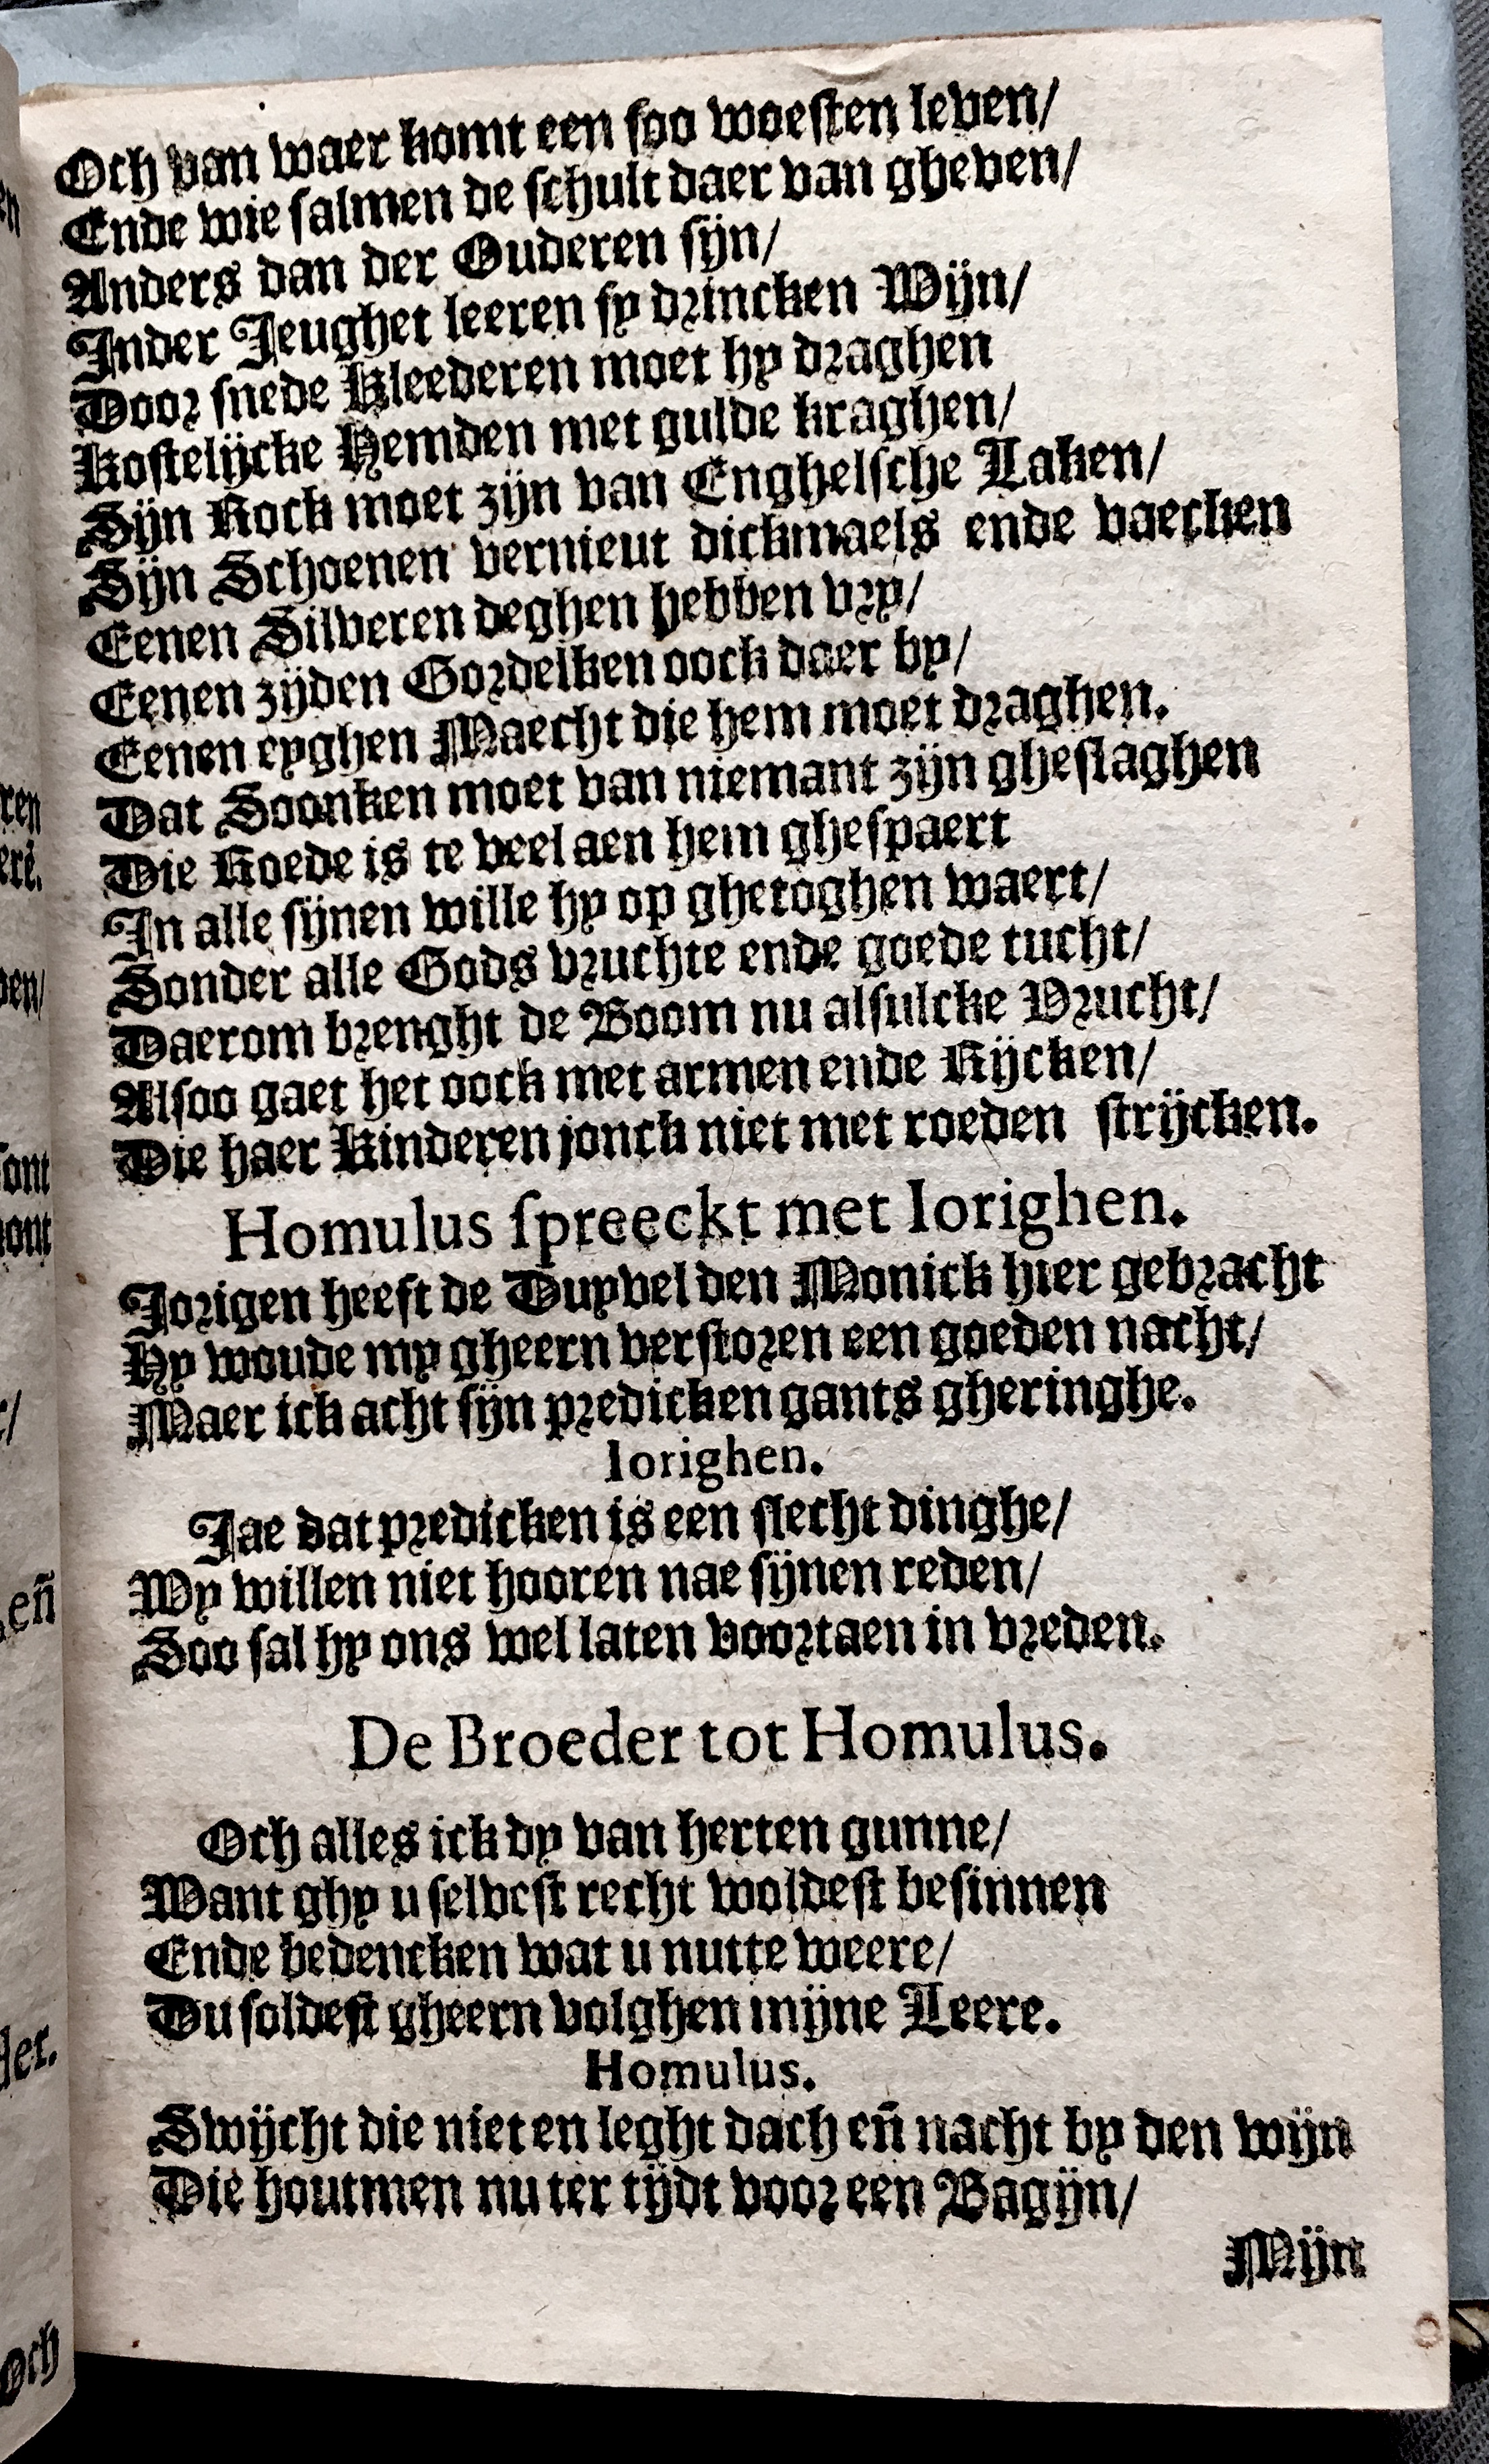 Och van waer komt een soo woesten leven/
Ende wie salmen de schult daer van gheven/
Anders dan der Ouderen sijn/
Inder Jeughet leeren sy drincken Wijn/
Door snede Kleederen moet hy draghen
Kostelijcke Hemden met gulde kraghen/
Sijn Rock moet zijn van Enghelsche Laken/
Sijn Schoenen vernieut dickmaels ende vaecken
Eenen Silveren deghen hebben vry/
Eenen zijden Gordelken oock daer by/
Eenen eyghen Maecht die hem moet draghen.
Dat Soonken moet van niemant zijn gheslaghen
Die Roede is te veel aen hem ghespaert
In alle sijnen wille hy op ghetoghen waert/
Sonder alle Gods vruchte ende goede tucht/
Daerom brenght de Boom nu alsulcke Vrucht/
Alsoo gaet het oock met armen ende Rijcken/
Die haer Kinderen jonck niet met roeden strijcken.
Homulus spreeckt met Iorighen.
Jorigen heeft de Duyvel den Monick hier gebracht
Hy woude my gheern verstoren een goeden nacht/
Maer ick acht sijn predicken gants gheringhe.
Iorighen.
Jae dat predicken is een slecht dinghe/
Wy willen niet hooren nae sijnen reden/
Soo sal hy ons wel laten voortaen in vreden.
De Broeder tot Homulus.
Och alles ick dy van herten gunne/
Want ghy u selvest recht woldest besinnen
Ende bedencken wat u nutte weere/
Du soldest gheern volghen mijne Leere.
Homulus.
Swijcht die niet en leght dach eñ nacht by den wijn
Die houtmen nu ter tijdt voor een Bagijn/
Mijn